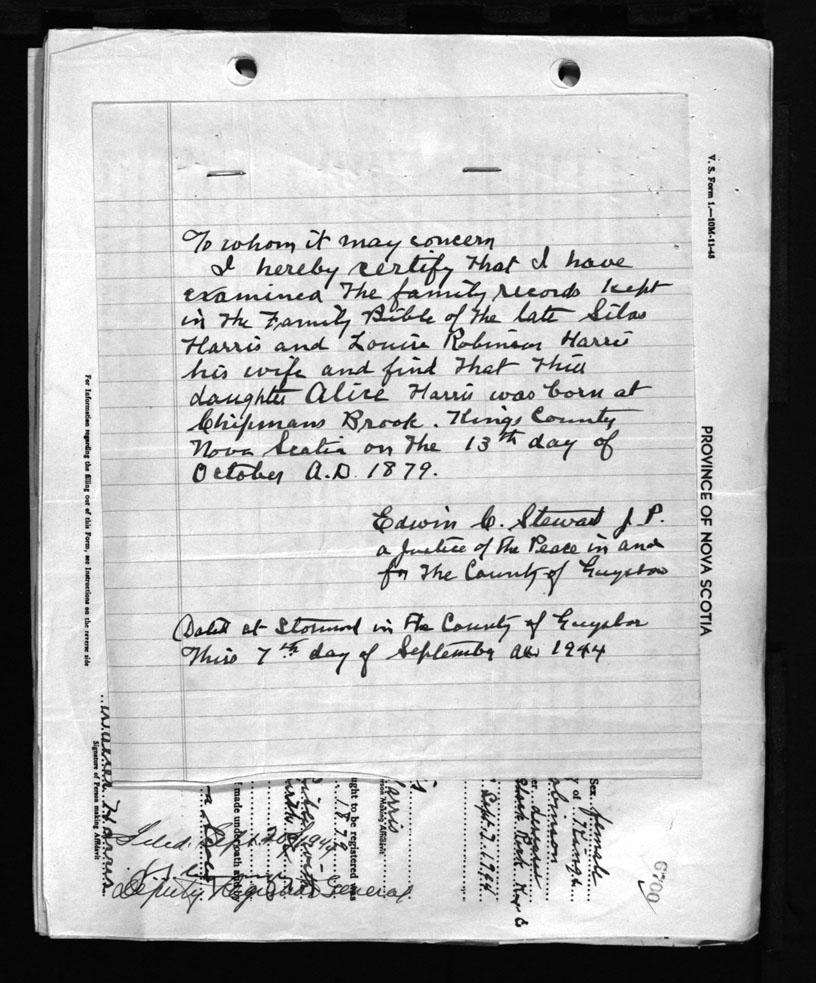 To whom it may concern
I hereby certify that I have
examined the family records kept
in the Family Bible of the late Silas
Harris and Louise Robinson Harris
his wife and find that their
daughter Alice Harris was born at
Chipmans Brook. Kings County
Nova Scotia on the 13th day of
October A.D. 1879.
Edwin C. Stewart J.P.
a Justice of the Peace in and
for the County of Guysboro
Dated at Stormont in the County of Guysboro
this 7th day of September AD 1944
V. S. Form 1.—10M-11-43
PROVINCE OF NOVA SCOTIA
For Information regarding the filling out of this Form, see Instructions on the reverse side
Harris
Signature of Person making Affidavit
Filed Sept. 20, 1944
Deputy Registrar General
made under oath
ught to be registered was
1879
arris
Sept. 7. 1944
Sex female
of Kings
obinson
deceased
6700